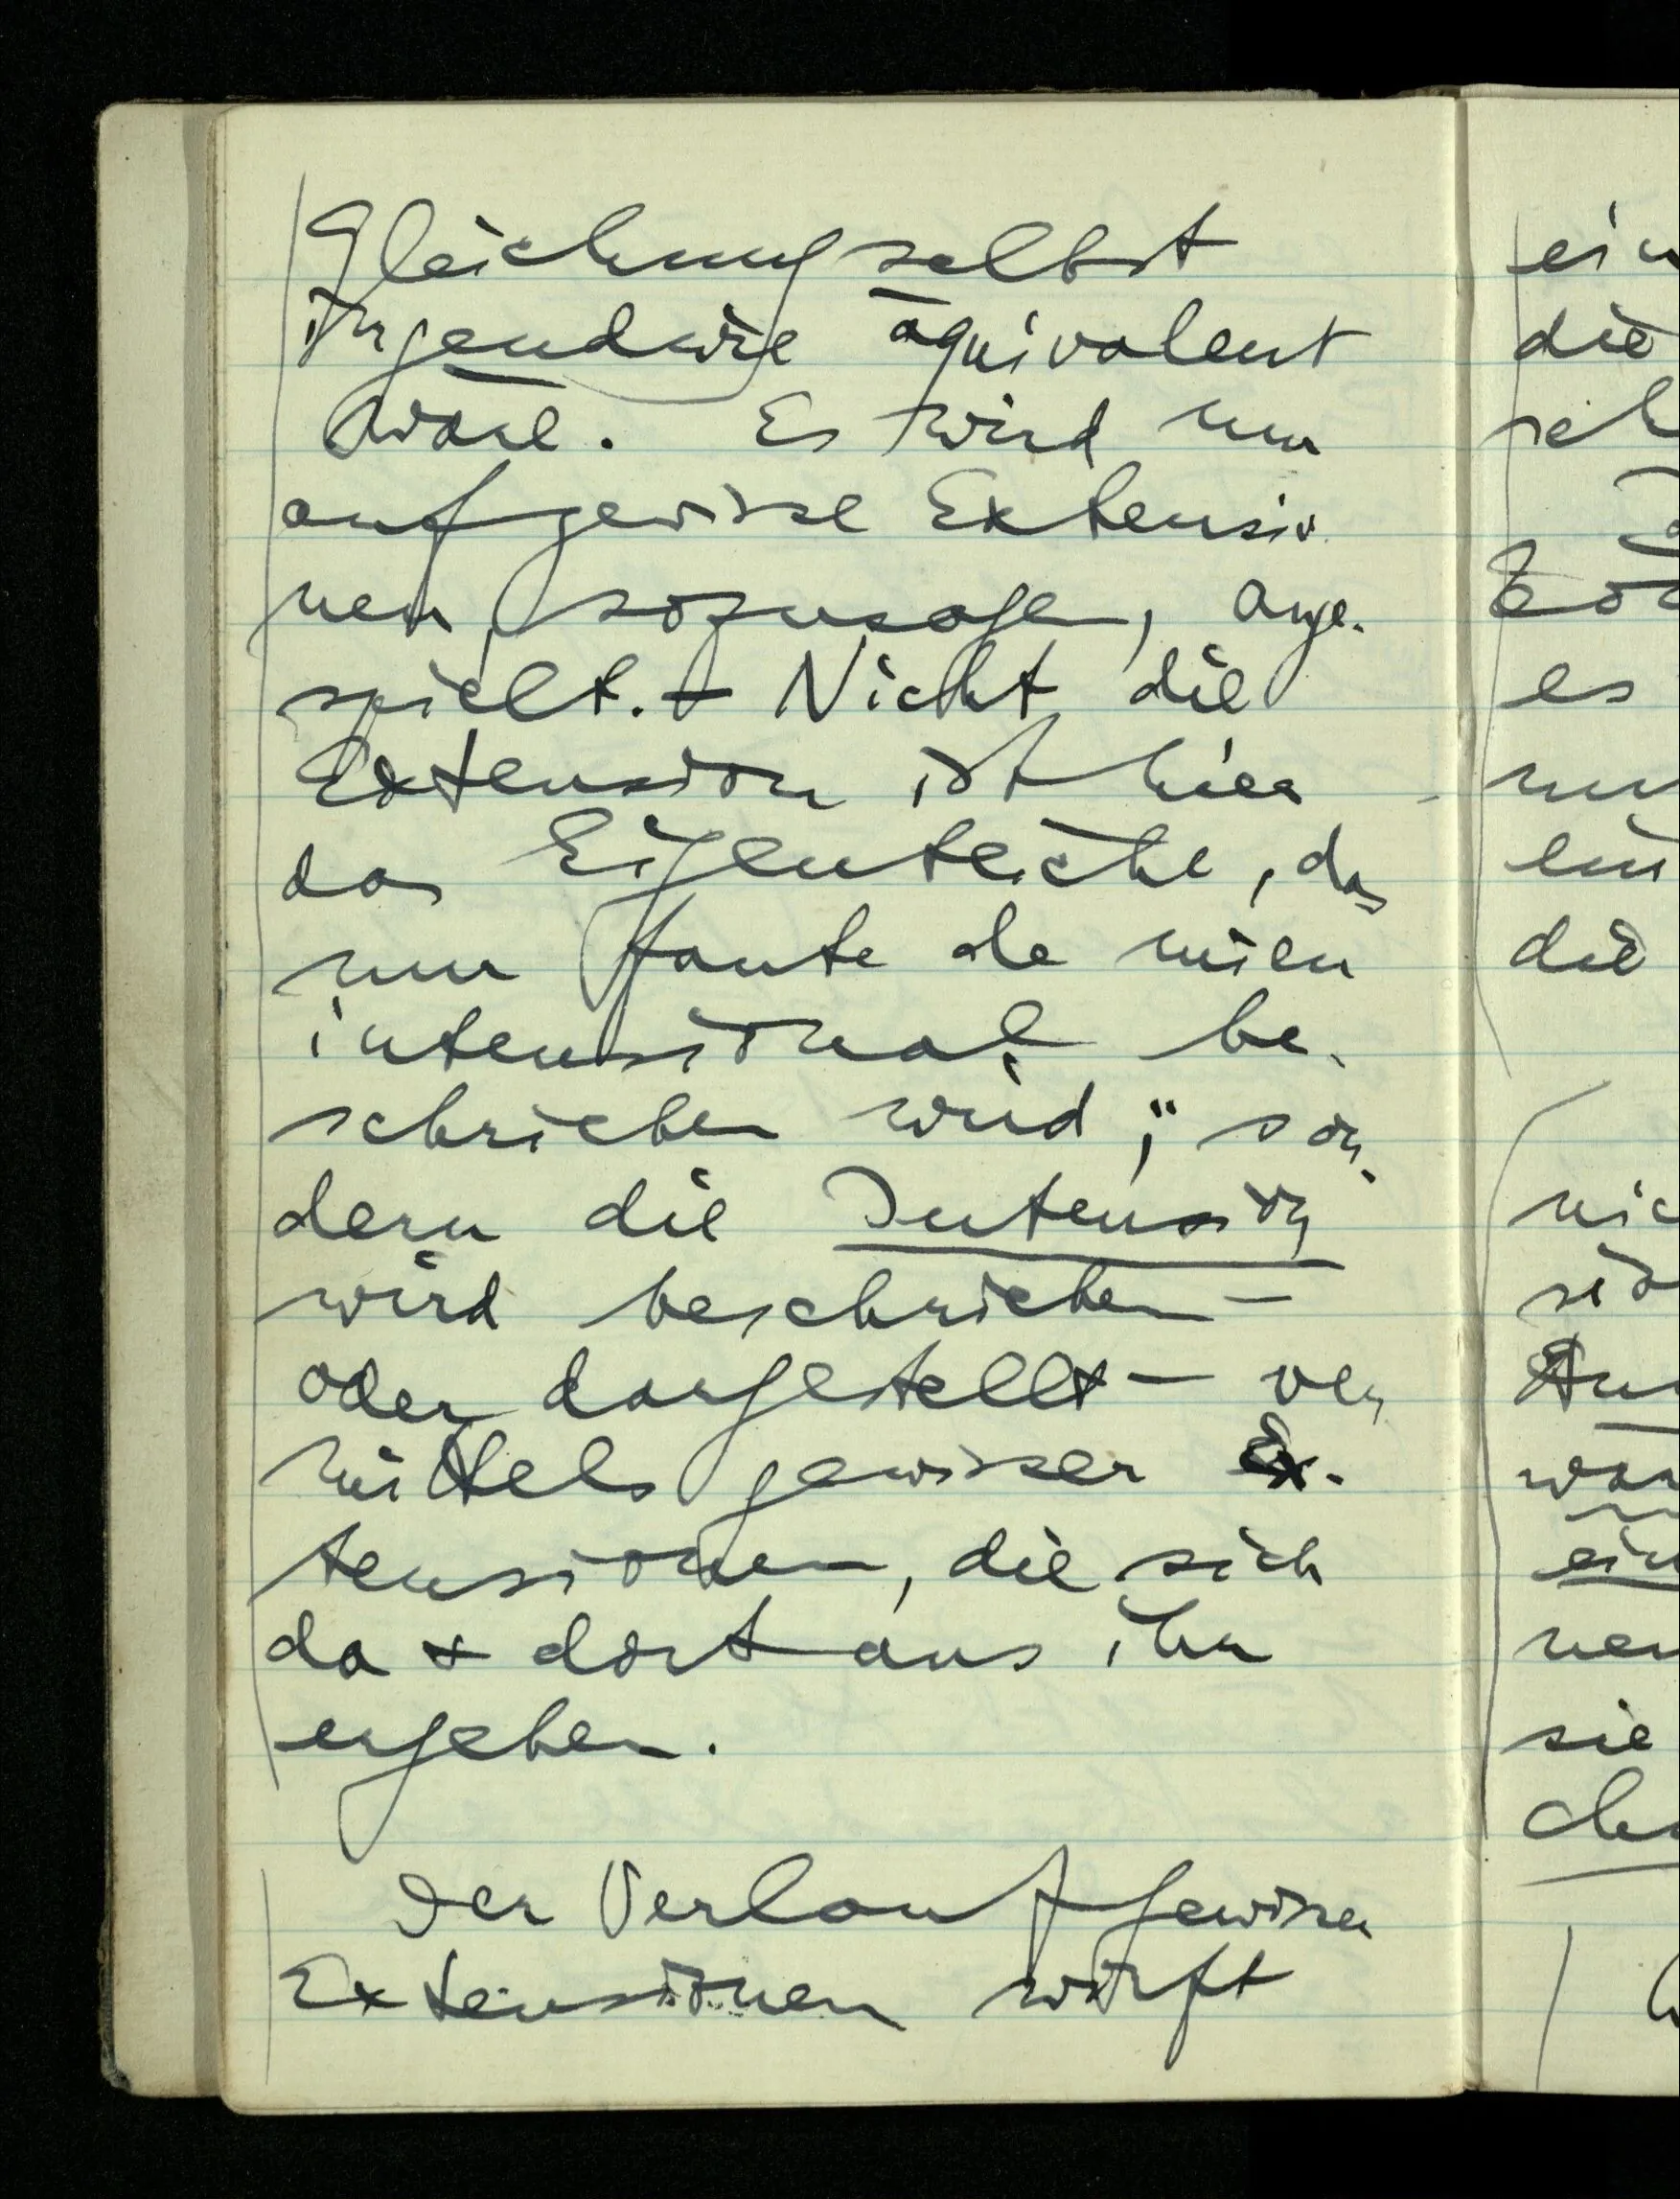 Gleichung selbst
irgendwie äquivalent
wäre. Es wird nur
auf gewisse Extensio-
nen, sozusagen, ange-
spielt. – Nicht die
Extension ist hier
das Eigentliche, das
nur faute de mieu
intensional be-
schrieben wird; son-
dern die Intension
wird beschrieben –
oder dargestellt – ver-
mittels gewisser Ex-
tensionen, die sich
da & dort aus ihr
ergeben.
Der Verlauf gewisser
Extensionen wirft
die
es
die
sie